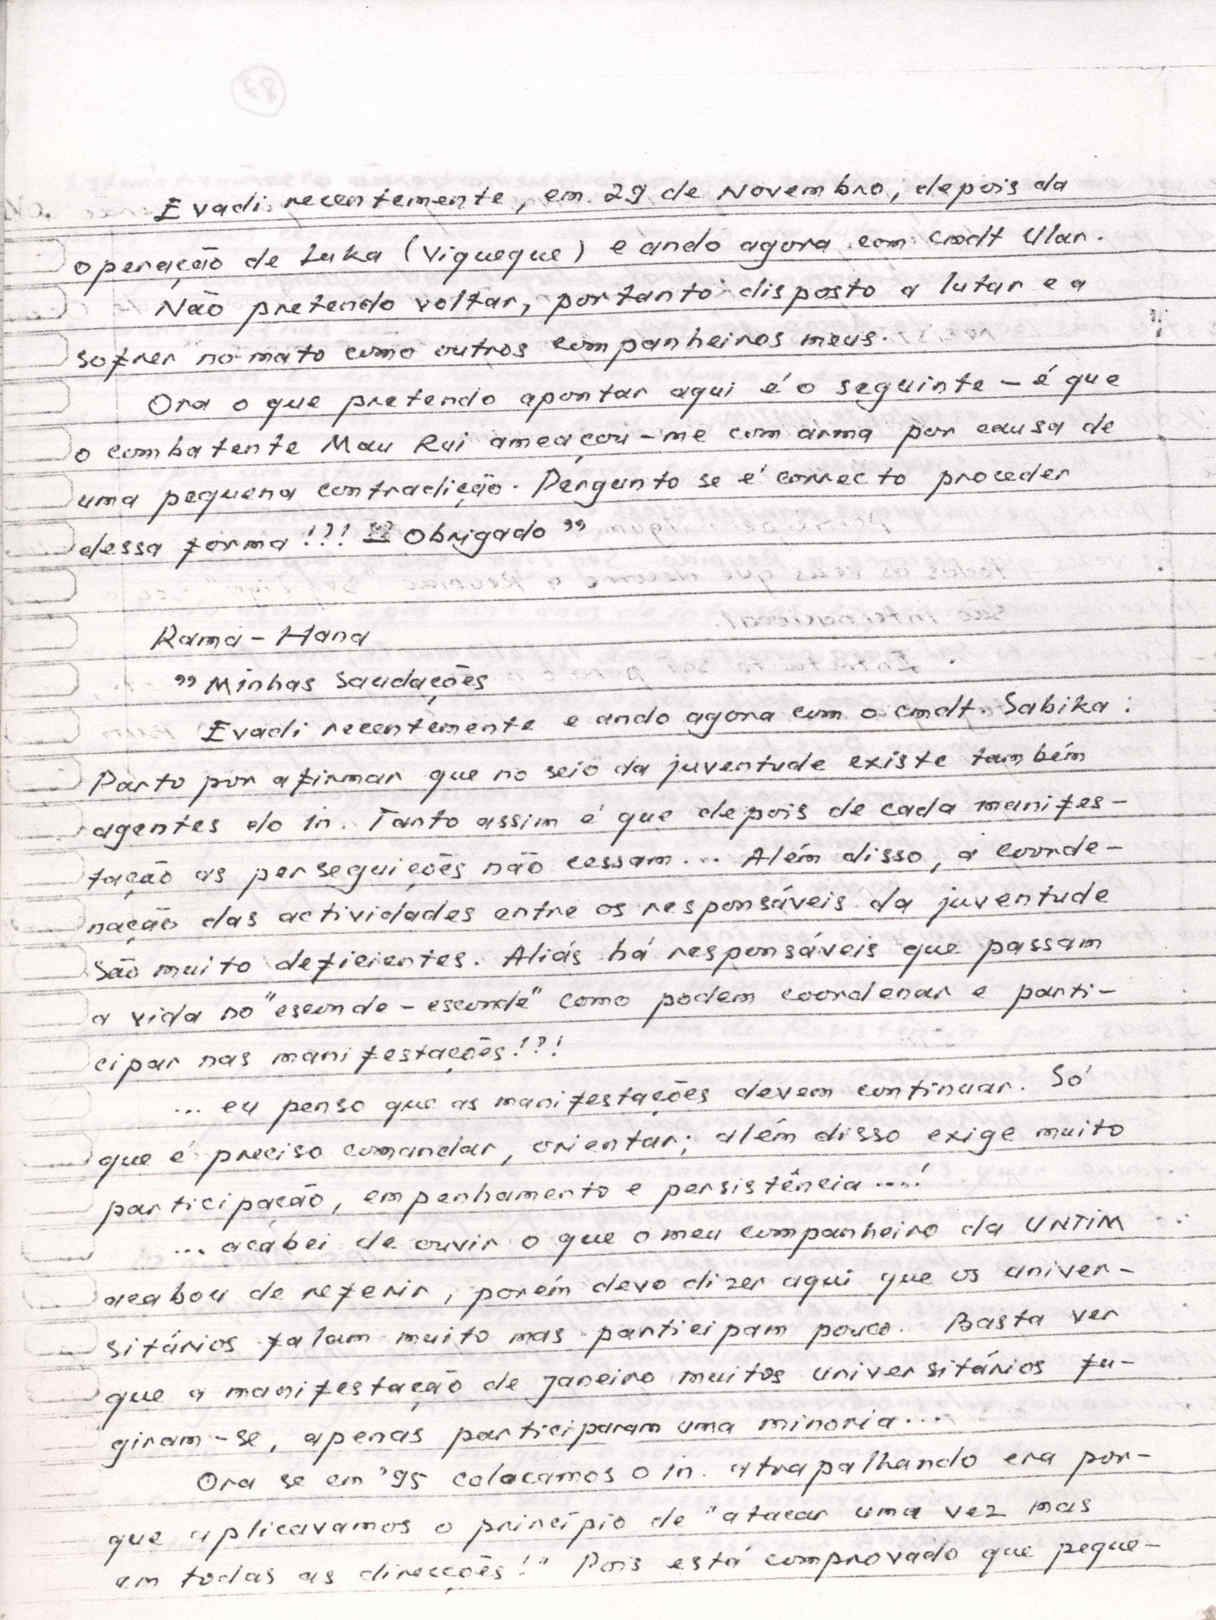 Evadi recentemente, em 29 de Novembro, depois da
operação de Luka (Viqueque) e ando agora com cmdt Ular.
Não pretendo voltar, portanto disposto a lutar e a
sofrer no mato como outros companheiros meus.
Ora o que pretendo apontar aqui é o seguinte - é que
o combatente Mau Rui ameaçou-me com arma por causa de
uma pequena contradição. Pergunto se é correcto proceder
dessa forma!?! Obrigado"
Rama - Hana
"Minhas Saudações
Evadi recentemente e ando agora com o cmdt. Sabika:
Parto por afirmar que no seio da juventude existe também
agentes do in. Tanto assim é que depois de cada manifes-
tação as perseguições não cessam... Além disso, a coorde-
nação das actividades entre os responsáveis da juventude
são muito deficientes. Aliás há responsáveis que passam
a vida no "esconde-esconde" como podem coordenar e parti-
cipar nas manifestações!?!
... eu penso que as manifestações devem continuar. Só
que é preciso comandar, orientar; além disso exige muito
participação, empenhamento e persistência....!
... acabei de ouvir o que o meu companheiro da UNTIM
acabou de referir, porém devo dizer aqui que os univer-
sitários falam muito mas participam pouco. Basta ver
que a manifestação de janeiro muitos universitários fu-
giram-se, apenas participaram uma minoria...
Ora se em '95 colocamos o in. atrapalhando era por-
que aplicavamos o princípio de "atacar uma vez mas
em todas as direcções!" Pois está comprovado que peque-